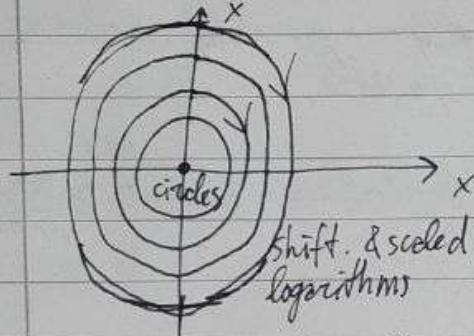 x
x
circles
shift. & scaled
logarithms